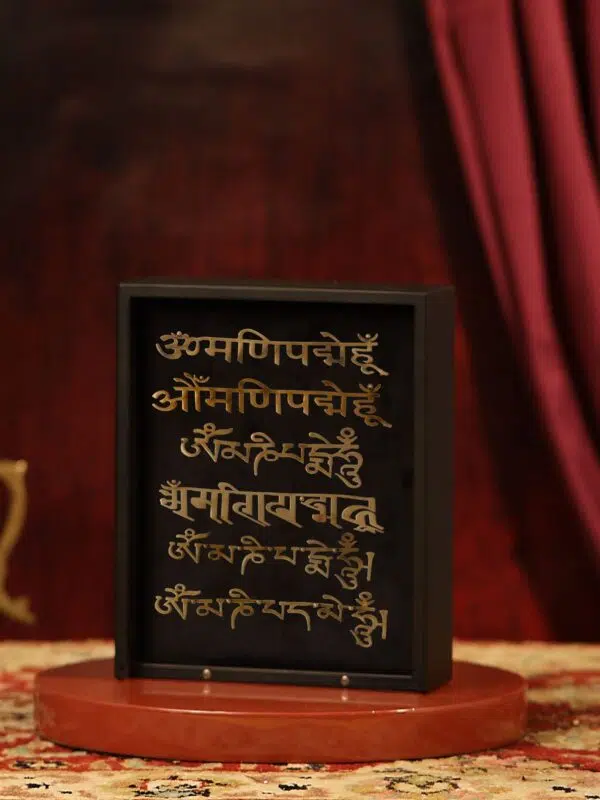 ॐमणिपद्मेहूँ
औँमणिपद्मेहूँ
ཨོཾམཎིཔདྨེཧཱུྃ
ཨོཾ་མ་ཎི་པ་དྨེ་ཧཱུྃ།
ཨོཾ་མ་ཎི་པད་མེ་ཧཱུྃ།